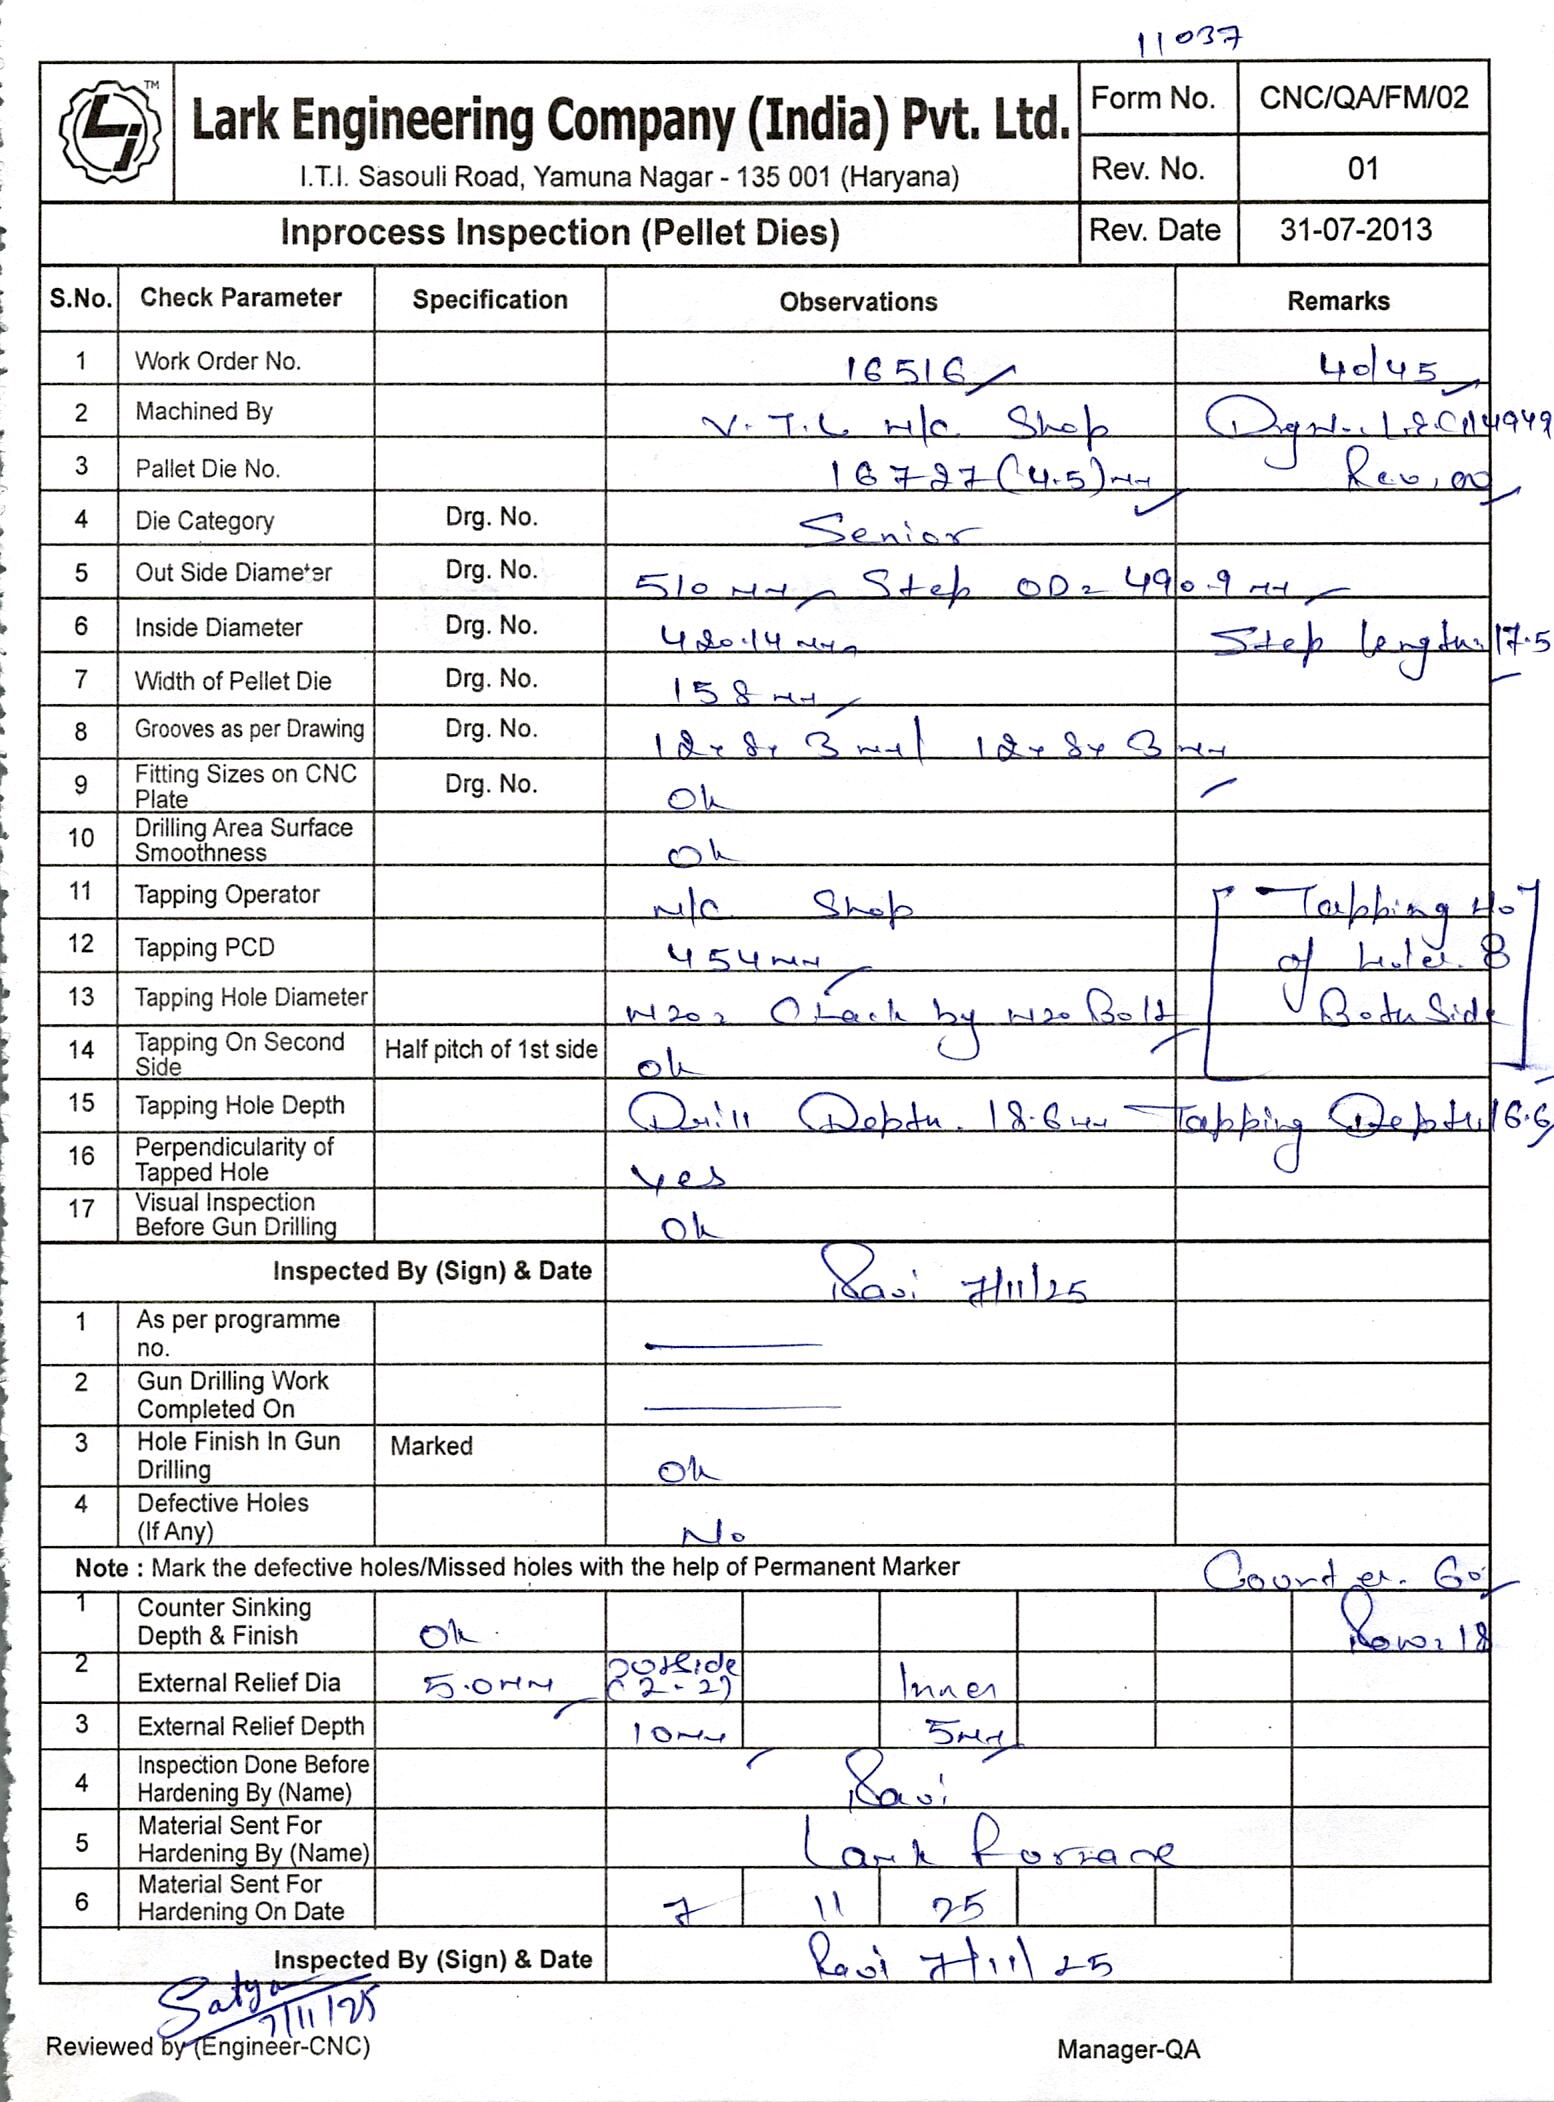 11037
TM
Lark Engineering Company (India) Pvt. Ltd.
I.T.I. Sasouli Road, Yamuna Nagar - 135 001 (Haryana)
Form No. CNC/QA/FM/02
Rev. No. 01
Inprocess Inspection (Pellet Dies) Rev. Date 31-07-2013
S.No. Check Parameter Specification Observations Remarks
1 Work Order No. 16516 40/45
2 Machined By V.T.L M/C Shop Drg No. L.E.C/14949
3 Pallet Die No. 16727 (4.5) mm Rev. 00
4 Die Category Drg. No. Senior
5 Out Side Diameter Drg. No. 510 mm Step OD = 490.9 mm
6 Inside Diameter Drg. No. 420.14 mm Step length = 17.5
7 Width of Pellet Die Drg. No. 158 mm
8 Grooves as per Drawing Drg. No. 12 x 8 x 3 mm / 12 x 8 x 3 mm
9 Fitting Sizes on CNC Plate Drg. No. Ok
10 Drilling Area Surface Smoothness Ok
11 Tapping Operator M/C Shop Tapping No
12 Tapping PCD 454 mm of hole. 8
13 Tapping Hole Diameter M20 = Check by M20 Bolt Both Side
14 Tapping On Second Side Half pitch of 1st side Ok
15 Tapping Hole Depth Drill Depth. 18.6 mm Tapping Depth. 16.6
16 Perpendicularity of Tapped Hole Yes
17 Visual Inspection Before Gun Drilling Ok
Inspected By (Sign) & Date Ravi 7/11/25
1 As per programme no.
2 Gun Drilling Work Completed On
3 Hole Finish In Gun Drilling Marked Ok
4 Defective Holes (If Any) No
Note : Mark the defective holes/Missed holes with the help of Permanent Marker Counter. 60°
1 Counter Sinking Depth & Finish Ok Row = 18
2 External Relief Dia 5.0 mm Outside (2-2) Inner
3 External Relief Depth 10 mm 5 mm
4 Inspection Done Before Hardening By (Name) Ravi
5 Material Sent For Hardening By (Name) Lark Fornace
6 Material Sent For Hardening On Date 7 11 25
Inspected By (Sign) & Date Ravi 7/11/25
Satya
7/11/25
Reviewed by (Engineer-CNC) Manager-QA